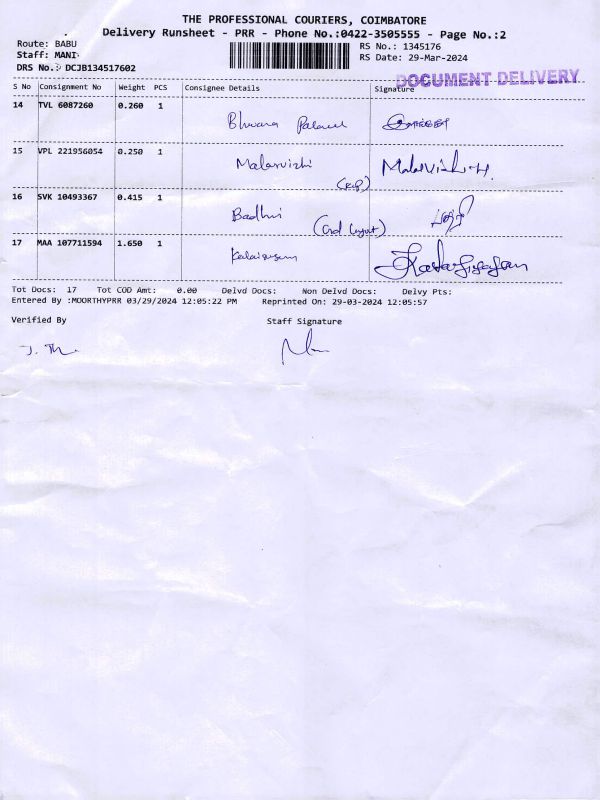 THE PROFESSIONAL COURIERS, COIMBATORE
Delivery Runsheet - PRR - Phone No.:0422-3505555 - Page No.:2
Route: BABU
Staff: MANI
DRS No.: DCJB134517602
RS No.: 1345176
RS Date: 29-Mar-2024
DOCUMENT DELIVERY
S No Consignment No Weight PCS Consignee Details Signature
14 TVL 6087260 0.260 1
15 VPL 221956054 0.250 1 Malarvizhi Malarvizhi.H.
16 SVK 10493367 0.415 1 Badhri
17 MAA 107711594 1.650 1
Tot Docs: 17 Tot COD Amt: 0.00 Delvd Docs: Non Delvd Docs: Delvy Pts:
Entered By :MOORTHYPRR 03/29/2024 12:05:22 PM Reprinted On: 29-03-2024 12:05:57
Verified By Staff Signature